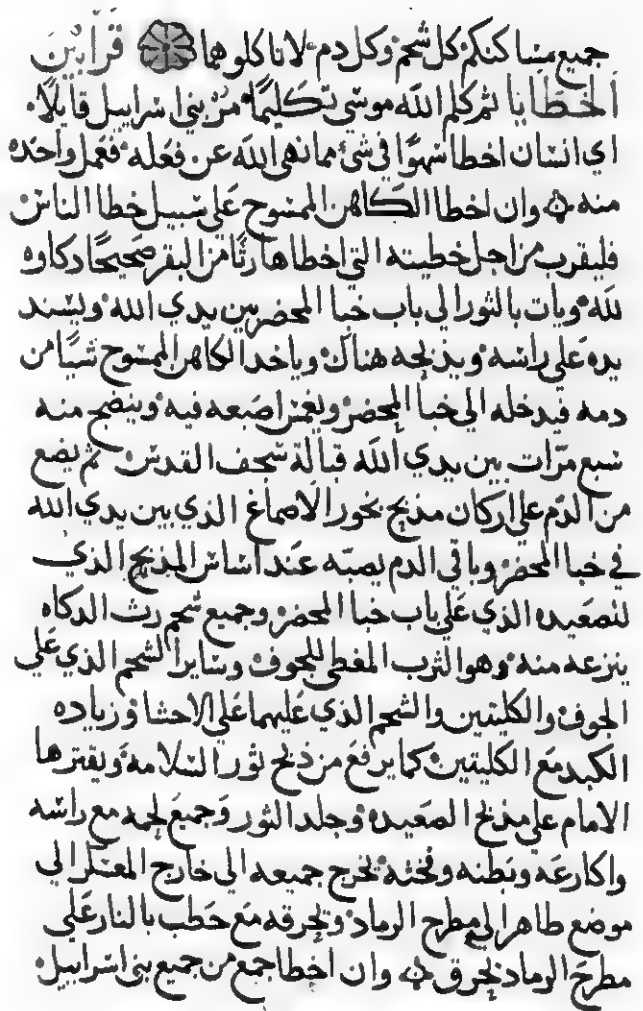 جميع مساكنكم كل شحم وكل دم لا تاكلوهما قرابين
الخطايا ثم كلم الله موسى تكليمًا مُرْ بني اسراييل قايلًا
اي انسان اخطا سهوًا في شي مما نهى الله عن فعله فعمل واحده
منه وان اخطا الكاهن الممسوح على سبيل خطا الناس
فليقرب من اجل خطيته التي اخطاها رثًا من البقر صحيحًا دكاوه
لله ويات بالثور الى باب خبا المحضر بين يدي الله ويسند
يده على راسه ويذبحه هناك وياخد الكاهن الممسوح شيًا من
دمه فيدخله الي خبا المحضر ويغمس اصبعه فيه وينضح منه
سبع مرّات بين يدي الله قبالة سجف القدس ثم يضع
من الدّم على اركان مذبح بخور الاصماغ الذي بين يدي الله
في خبا المحضر وباقي الدم يصبّه عند اساس المذبح الذي
لتصعيده الذي على باب خبا المحضر وجميع شحم رث الدكاه
ينزعه منه وهو الثرب المغطى للجوف وساير الشحم الذي علي
الجوف والكليتين والشحم الذي عليهما على الاحشا وزياده
الكبد مع الكليتين كما يرفع من ذبح ثور السلامه ويقترها
الامام على مذبح الصعيده وجلد الثور وجميع لحمه مع راسه
واكارعه وبطنه وفحثه يخرج جميعه الي خارج المعسكر الي
موضع طاهر الي مطرح الرماد ويحرقه مع حطب بالنار علي
مطرح الرماد يحرق وان اخطا جمع من جميع بني اسراييل